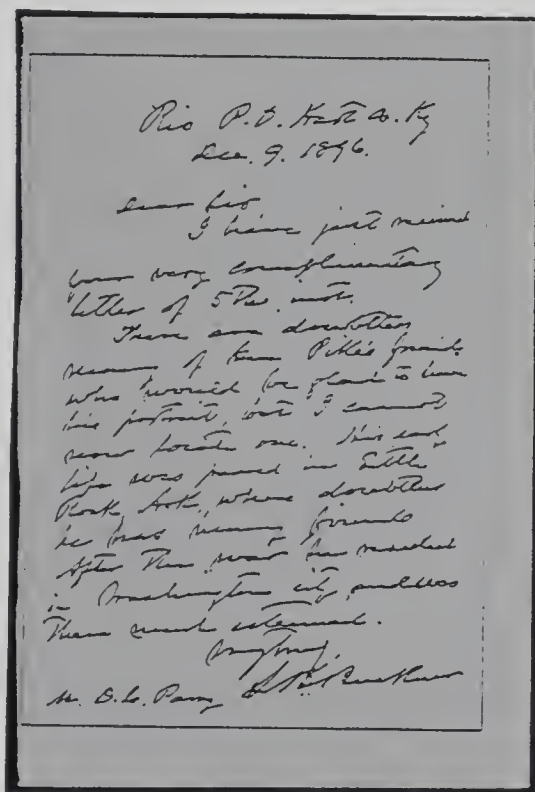 Rio P.O. Hart Co. Ky
Dec. 9. 1896.
Dear Sir
I have just received
your very complimentary
letter of 5th inst.
There are doubtless
many of Genl Pike's friends
who would be glad to have
his portrait, but I cannot
now locate one. His early
life was passed in Little
Rock, Ark., where doubtless
he has many friends
After the war he resided
in Washington city, and was
there much esteemed.
Very truly,
S. B. Buckner
Mr. D. L. Parry